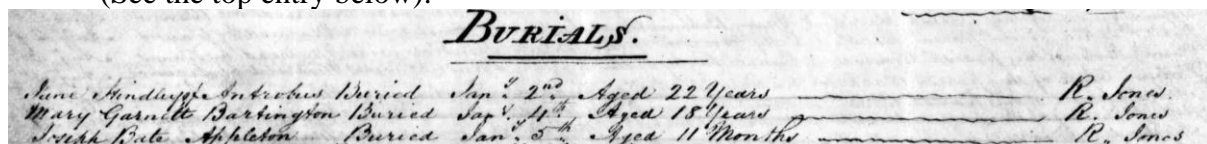 (See the top entry below).
BURIALS.
Jane Hindley of Antrobus Buried Jany. 2nd. Aged 22 Years R. Jones
Mary Garnett Bartington Buried Jany. 4th. Aged 18 Years R. Jones
Joseph Bate Appleton Buried Jany. 5th. Aged 11 Months R. Jones